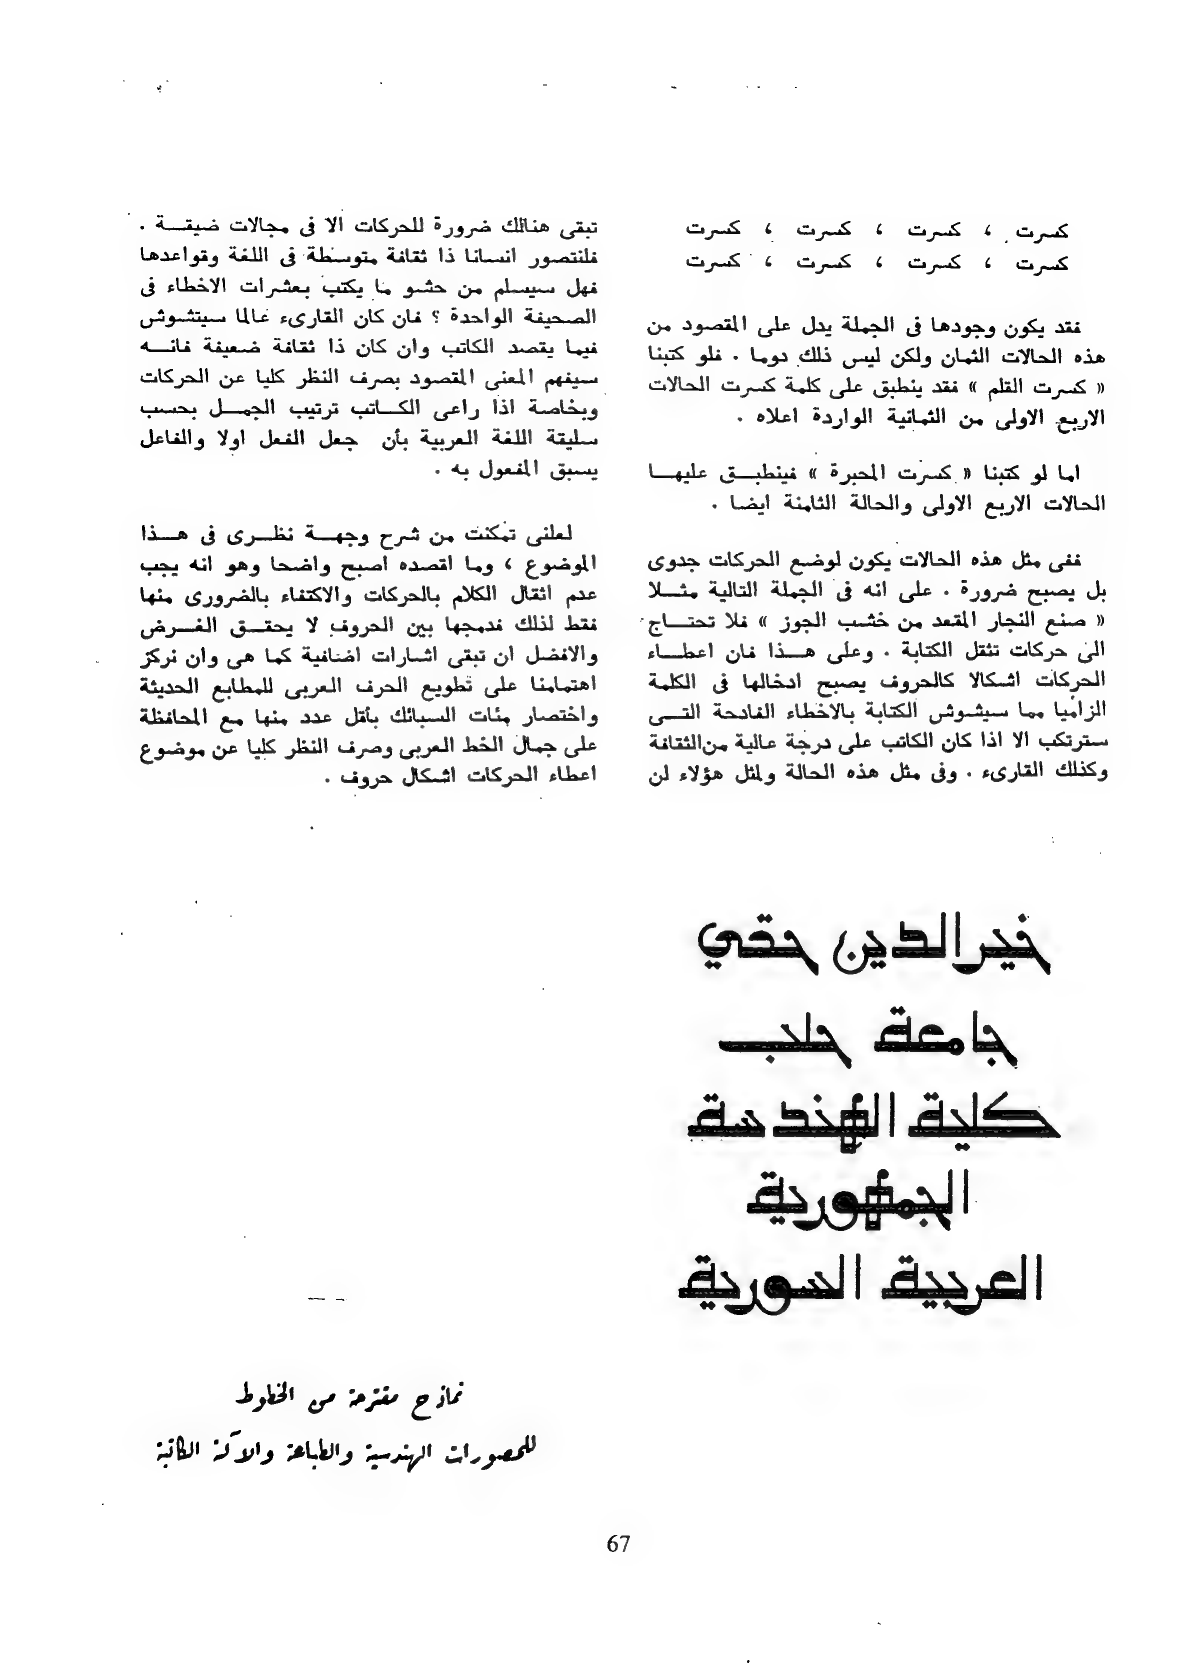 كسرت ، كسرت ، كسرت ، كسرت
كسرت ، كسرت ، كسرت ، كسرت
فقد يكون وجودها فى الجملة يدل على المقصود من
هذه الحالات الثمان ولكن ليس ذلك دوما . فلو كتبنا
« كسرت القلم » فقد ينطبق على كلمة كسرت الحالات
الاربع الاولى من الثمانية الواردة اعلاه .
اما لو كتبنا « كسرت المحبرة » فينطبـــق عليهـــا
الحالات الاربع الاولى والحالة الثامنة ايضا .
ففى مثل هذه الحالات يكون لوضع الحركات جدوى
بل يصبح ضرورة . على انه فى الجملة التالية مثـــلا
« صنع النجار المقعد من خشب الجوز » فلا تحتـــاج
الى حركات تثقل الكتابة . وعلى هـــذا فان اعطـــاء
الحركات اشكالا كالحروف يصبح ادخالها فى الكلمة
الزاميا مما سيشوش الكتابة بالاخطاء الفادحة التـــى
سترتكب الا اذا كان الكاتب على درجة عالية من الثقافة
وكذلك القارىء . وفى مثل هذه الحالة ولمثل هؤلاء لن
تبقى هنالك ضرورة للحركات الا فى مجالات ضيقـــة .
فلنتصور انسانا ذا ثقافة متوسطة فى اللغة وقواعدها
فهل سيسلم من حشو ما يكتب بعشرات الاخطاء فى
الصحيفة الواحدة ؟ فان كان القارىء عالما سيتشوش
فيما يقصد الكاتب وان كان ذا ثقافة ضعيفة فانـــه
سيفهم المعنى المقصود بصرف النظر كليا عن الحركات
وبخاصة اذا راعى الكـــاتب ترتيب الجمـــل بحسب
سليقة اللغة العربية بأن جعل الفعل اولا والفاعل
يسبق المفعول به .
لعلنى تمكنت من شرح وجهـــة نظـــرى فى هـــذا
الموضوع ، وما اقصده اصبح واضحا وهو انه يجب
عدم اثقال الكلام بالحركات والاكتفاء بالضرورى منها
فقط لذلك فدمجها بين الحروف لا يحقـــق الغـــرض
والافضل ان تبقى اشارات اضافية كما هى وان نركز
اهتمامنا على تطويع الحرف العربى للمطابع الحديثة
واختصار مئات السبائك بأقل عدد منها مع المحافظة
على جمال الخط العربى وصرف النظر كليا عن موضوع
اعطاء الحركات اشكال حروف .
خير الدين حقي
جامعة حلب
كلية الهندسة
الجمهورية
العربية السورية
نماذج مقترحة من الخطوط
للمصورات الهندسية والطباعة والآلة الكاتبة
67